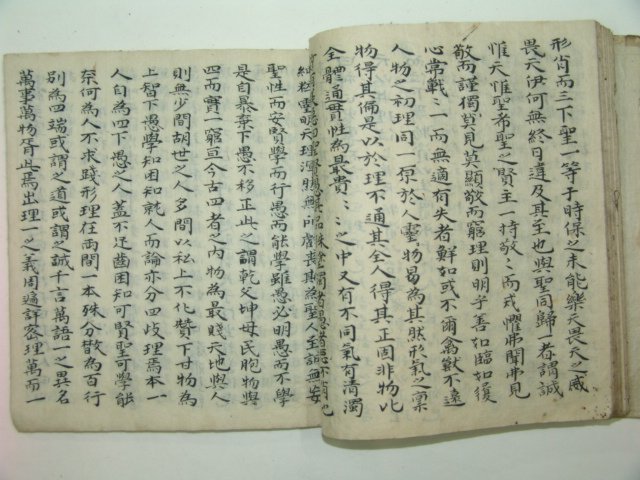 形肖而三下聖一等于時保之未能樂天畏天之威
畏天伊何無終日違及其至也與聖同歸一者謂誠
惟天惟聖希聖之賢主一持敬〻而戎懼弗聞弗見
敬而謹獨莫見莫顯敬而窮理則明乎善如臨如履
心常戰〻一而無適有失者鮮如或不爾禽獸不遠
人物之初理同一原於人靈物易爲其然形氣之稟
物得其偏是以於理不通其全人得其正固非物比
全體通貫性爲最貴〻之中又有不同氣有清濁
聖性而安賢學而行愚而能學雖愚必明愚而不學
是自暴弃下愚不移正此之謂乾父坤母民胞物與
四而實一窮亘今古四者之內物爲最賤天地與人
則無少間胡世之人多間以私上不化贊下甘物爲
上智下愚學知困知就人而論亦分四歧理焉本一
人自爲四下愚之人蓋不足齒困知可賢聖可學能
奈何爲人不求踐形理在兩間一本殊分散爲百行
別爲四端或謂之道或謂之誠千言萬語一之異名
萬事萬物胥此焉出理一之義周遍詳密理萬而一